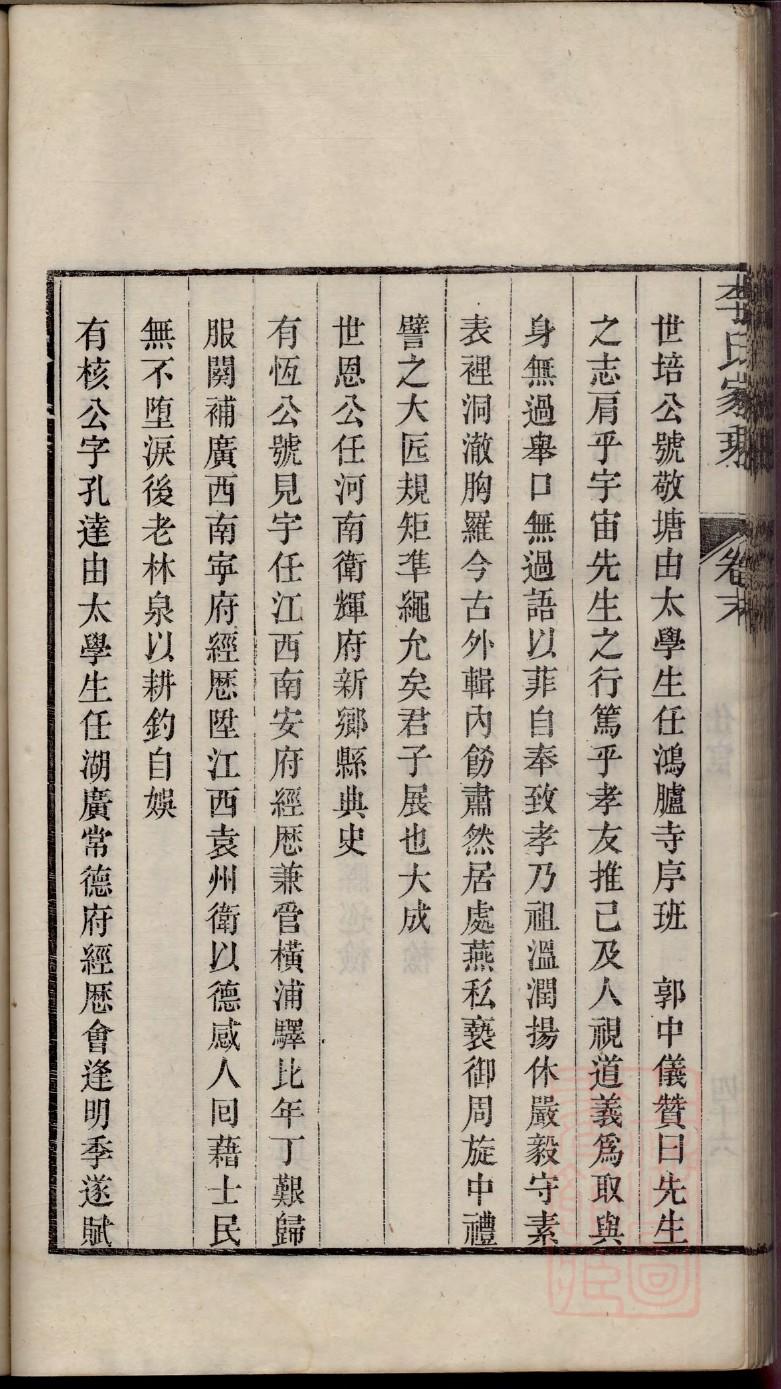 李氏家乘 卷末
世培公號敬塘由太學生任鴻臚寺序班　郭中儀贊曰先生
之志肩乎宇宙先生之行篤乎孝友推己及人視道義爲取與
身無過舉口無過語以菲自奉致孝乃祖溫潤揚休嚴毅守素
表裡洞澈胸羅今古外輯內飭肅然居處燕私褻御周旋中禮
譬之大匠規矩凖繩允矣君子展也大成
世恩公任河南衛輝府新鄉縣典史
有恆公號見宇任江西南安府經歷兼管橫浦驛比年丁艱歸
服闋補廣西南寧府經歷陞江西袁州衛以德感人回藉士民
無不墮淚後老林泉以耕釣自娛
有核公字孔達由太學生任湖廣常德府經歷會逢明季遂賦